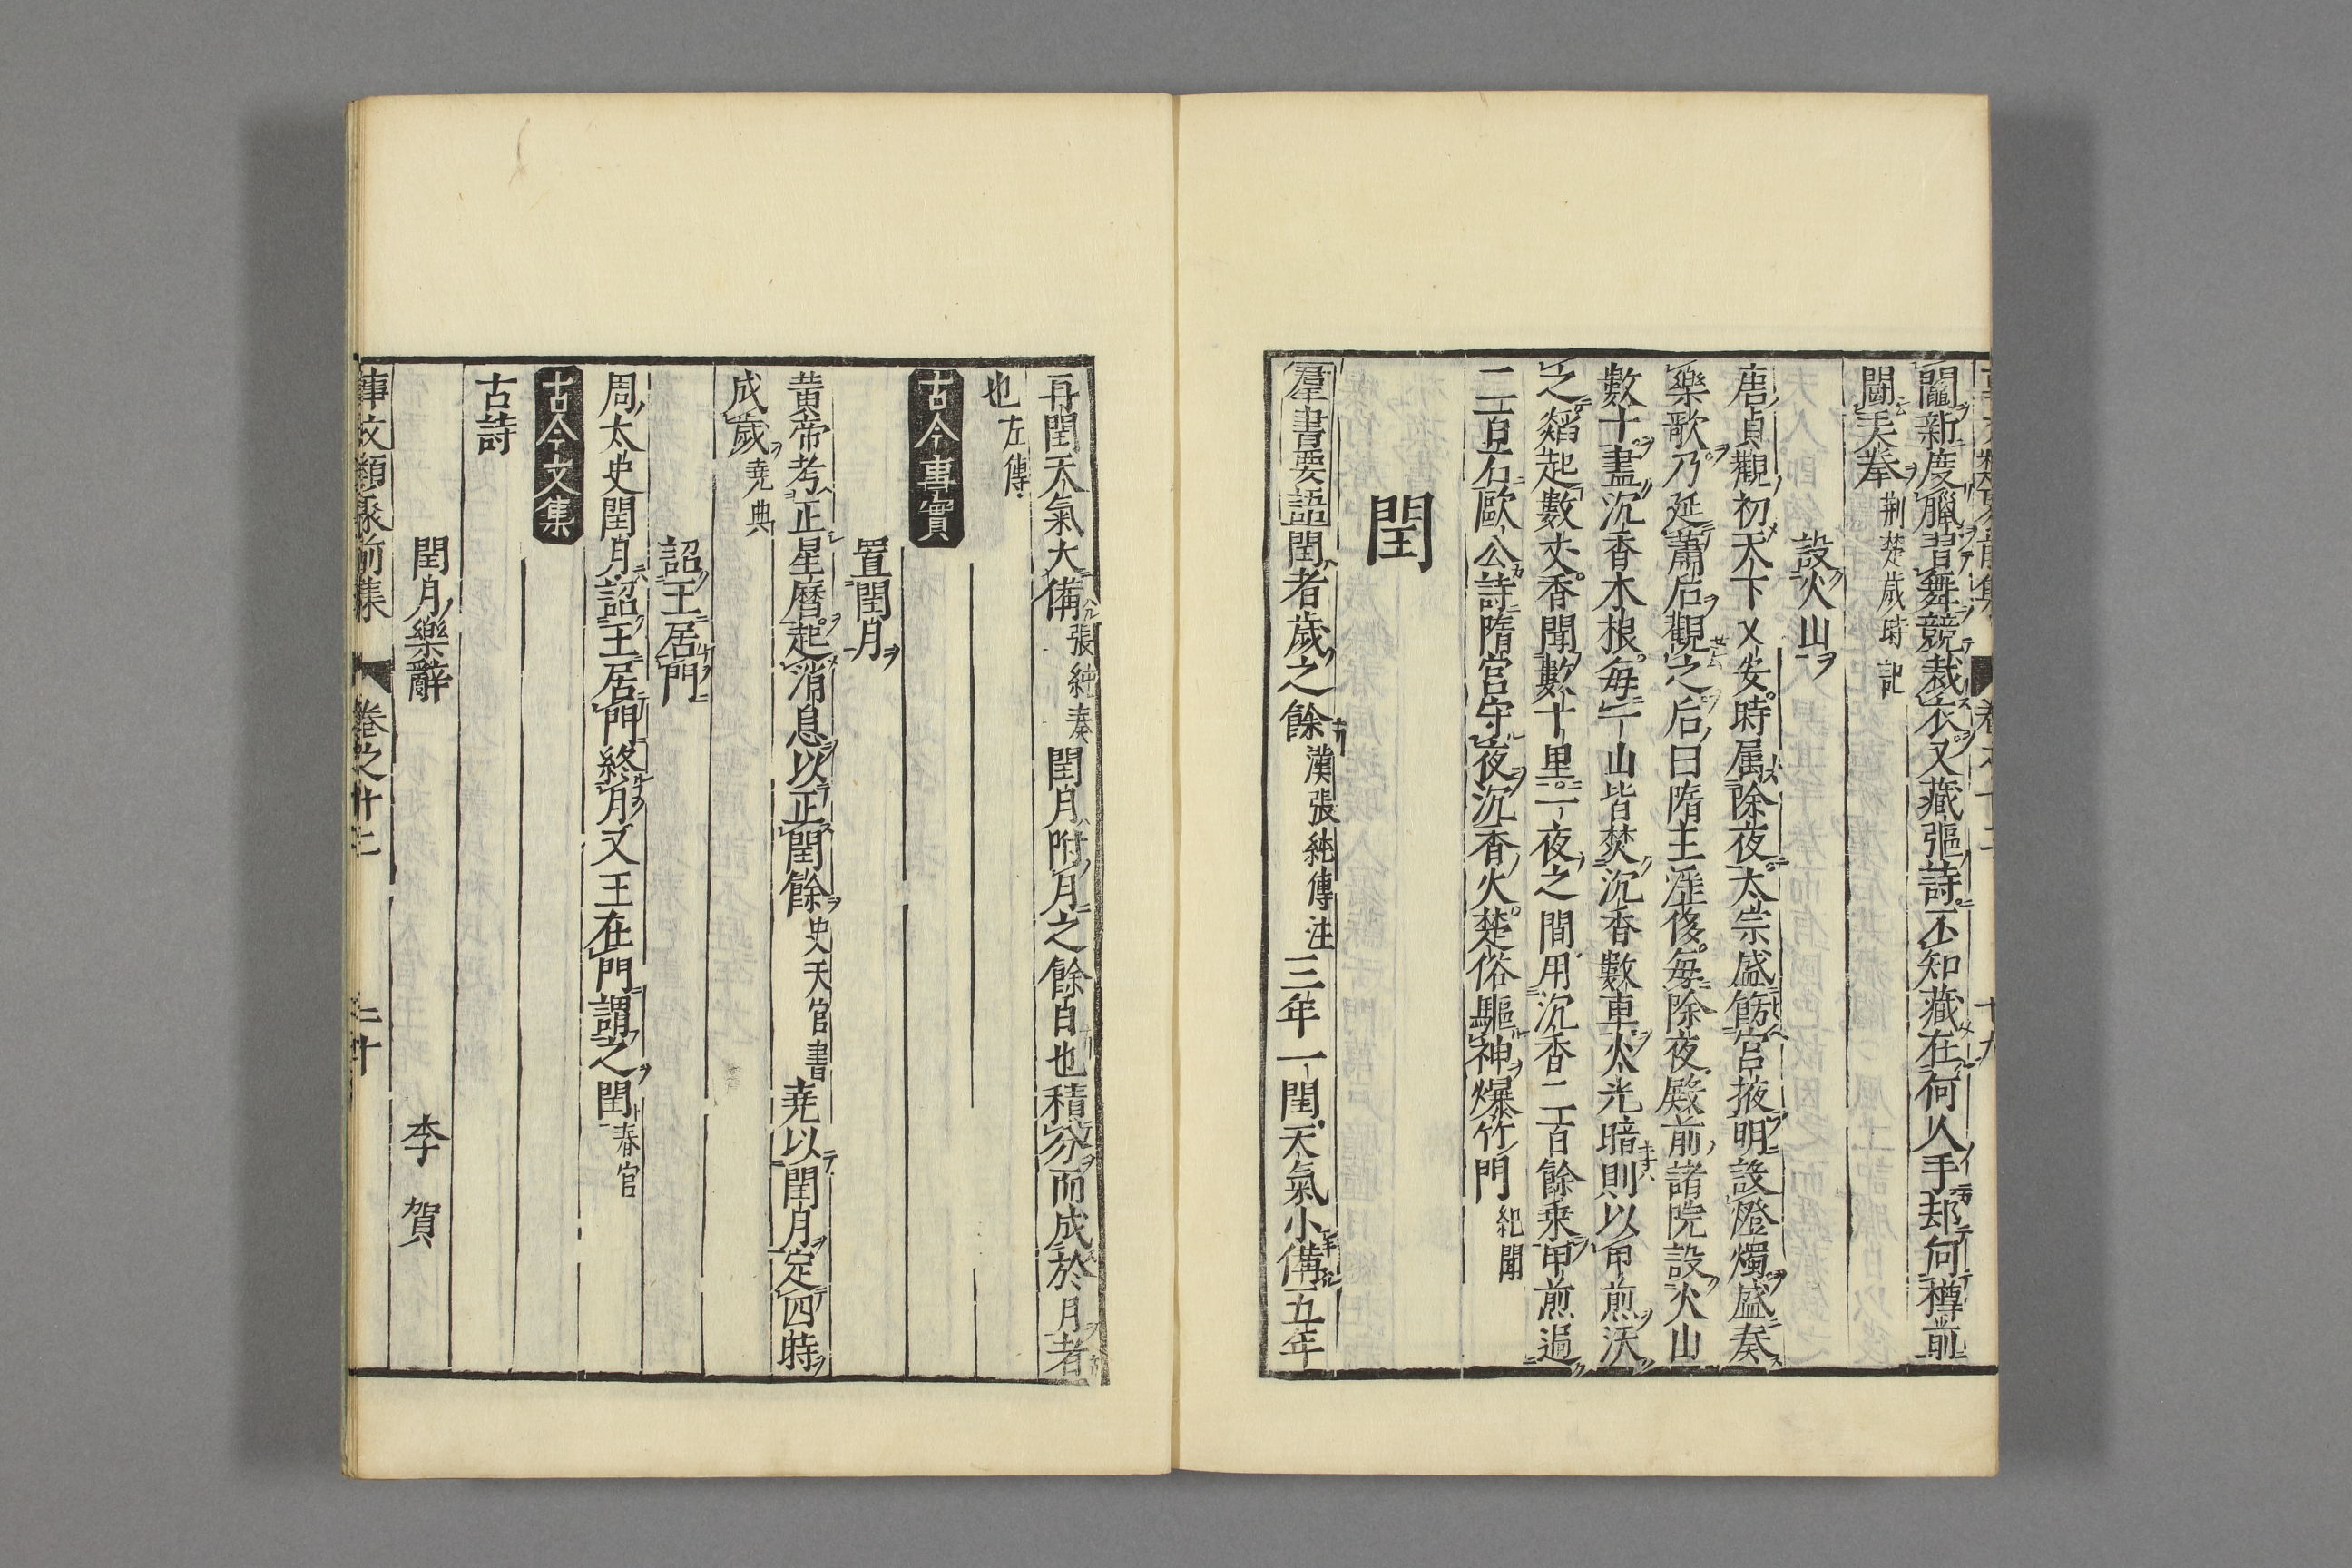 鬮新度臘習舞競裁衣又藏彄詩不知藏在何人手却向樽前
鬬美拳荆楚歲時記
設火山
唐貞觀初天下乂安時属除夜太宗盛飾宮掖明設燈燭盛奏
樂歌乃延蕭后觀之后曰隋主淫侈每除夜殿前諸院設火山
數十盡沉香木根每一山皆焚沉香數車火光暗則以甲煎沃
之熖起數丈香聞數十里一夜之間用沉香二百餘乘甲煎過
二百石歐公詩隋宮守夜沉香火楚俗驅神爆竹門紀聞
閏
羣書要語閏者歲之餘漢張純傳注三年一閏天氣小備五年
再閏天氣大備張純奏閏月附月之餘日也積分而成於月者
也左傳
古今事實
置閏月
黄帝考正星曆起消息以正閏餘史天官書堯以閏月定四時
成歲堯典
詔王居門
周太史閏月詔王居門終月文王在門謂之閏春官
古今文集
古詩
閏月樂辭 李賀
事文類聚前集 卷之十二 二十